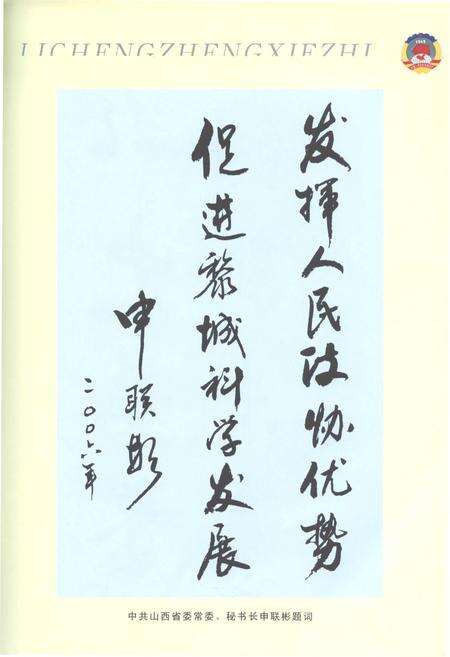 LICHENGZHENGXIEZHI
发挥人民政协优势
促进黎城科学发展
申联彬
二〇〇六年
中共山西省委常委、秘书长申联彬题词